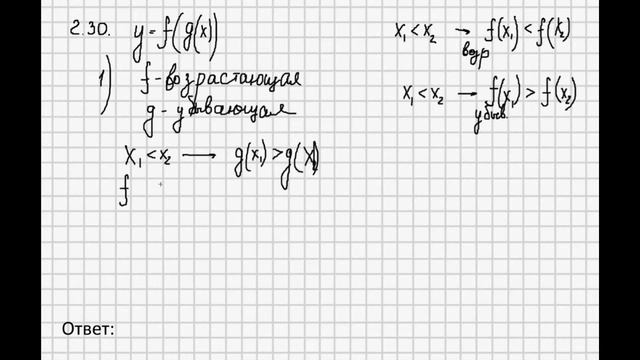 2.30. y = f(g(x))
1) f - возрастающая
g - убывающая
x₁ < x₂ → g(x₁) > g(x
f
x₁ < x₂ → f(x₁) < f(x₂)
возр
x₁ < x₂ → f(x₁) > f(x₂)
убыв.
Ответ: